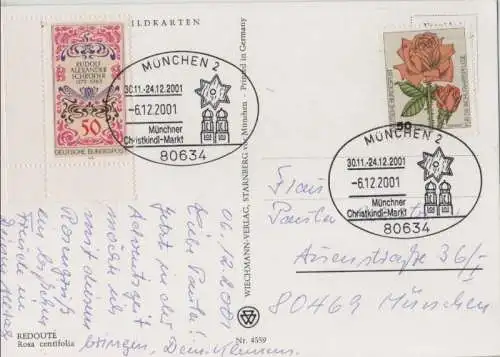 BILDKARTEN
RUDOLF
ALEXANDER
SCHRÖDER
1878-1962
50
DEUTSCHE BUNDESPOST
MÜNCHEN 2
30.11.-24.12.2001
-6.12.2001
Münchner
Christkindl-Markt
80634
WIECHMANN-VERLAG, STARNBERG vor München - Printed in Germany
50
MÜNCHEN 2
30.11.-24.12.2001
-6.12.2001
Münchner
Christkindl-Markt
80634
06.12.2001
Liebe
Jetzt in der
Adventszeit
möchte ich
mit diesem
Rosengruß
Freude in
bringen, Dein
Frau
80469 München
REDOUTÉ
Rosa centifolia
Nr. 4559